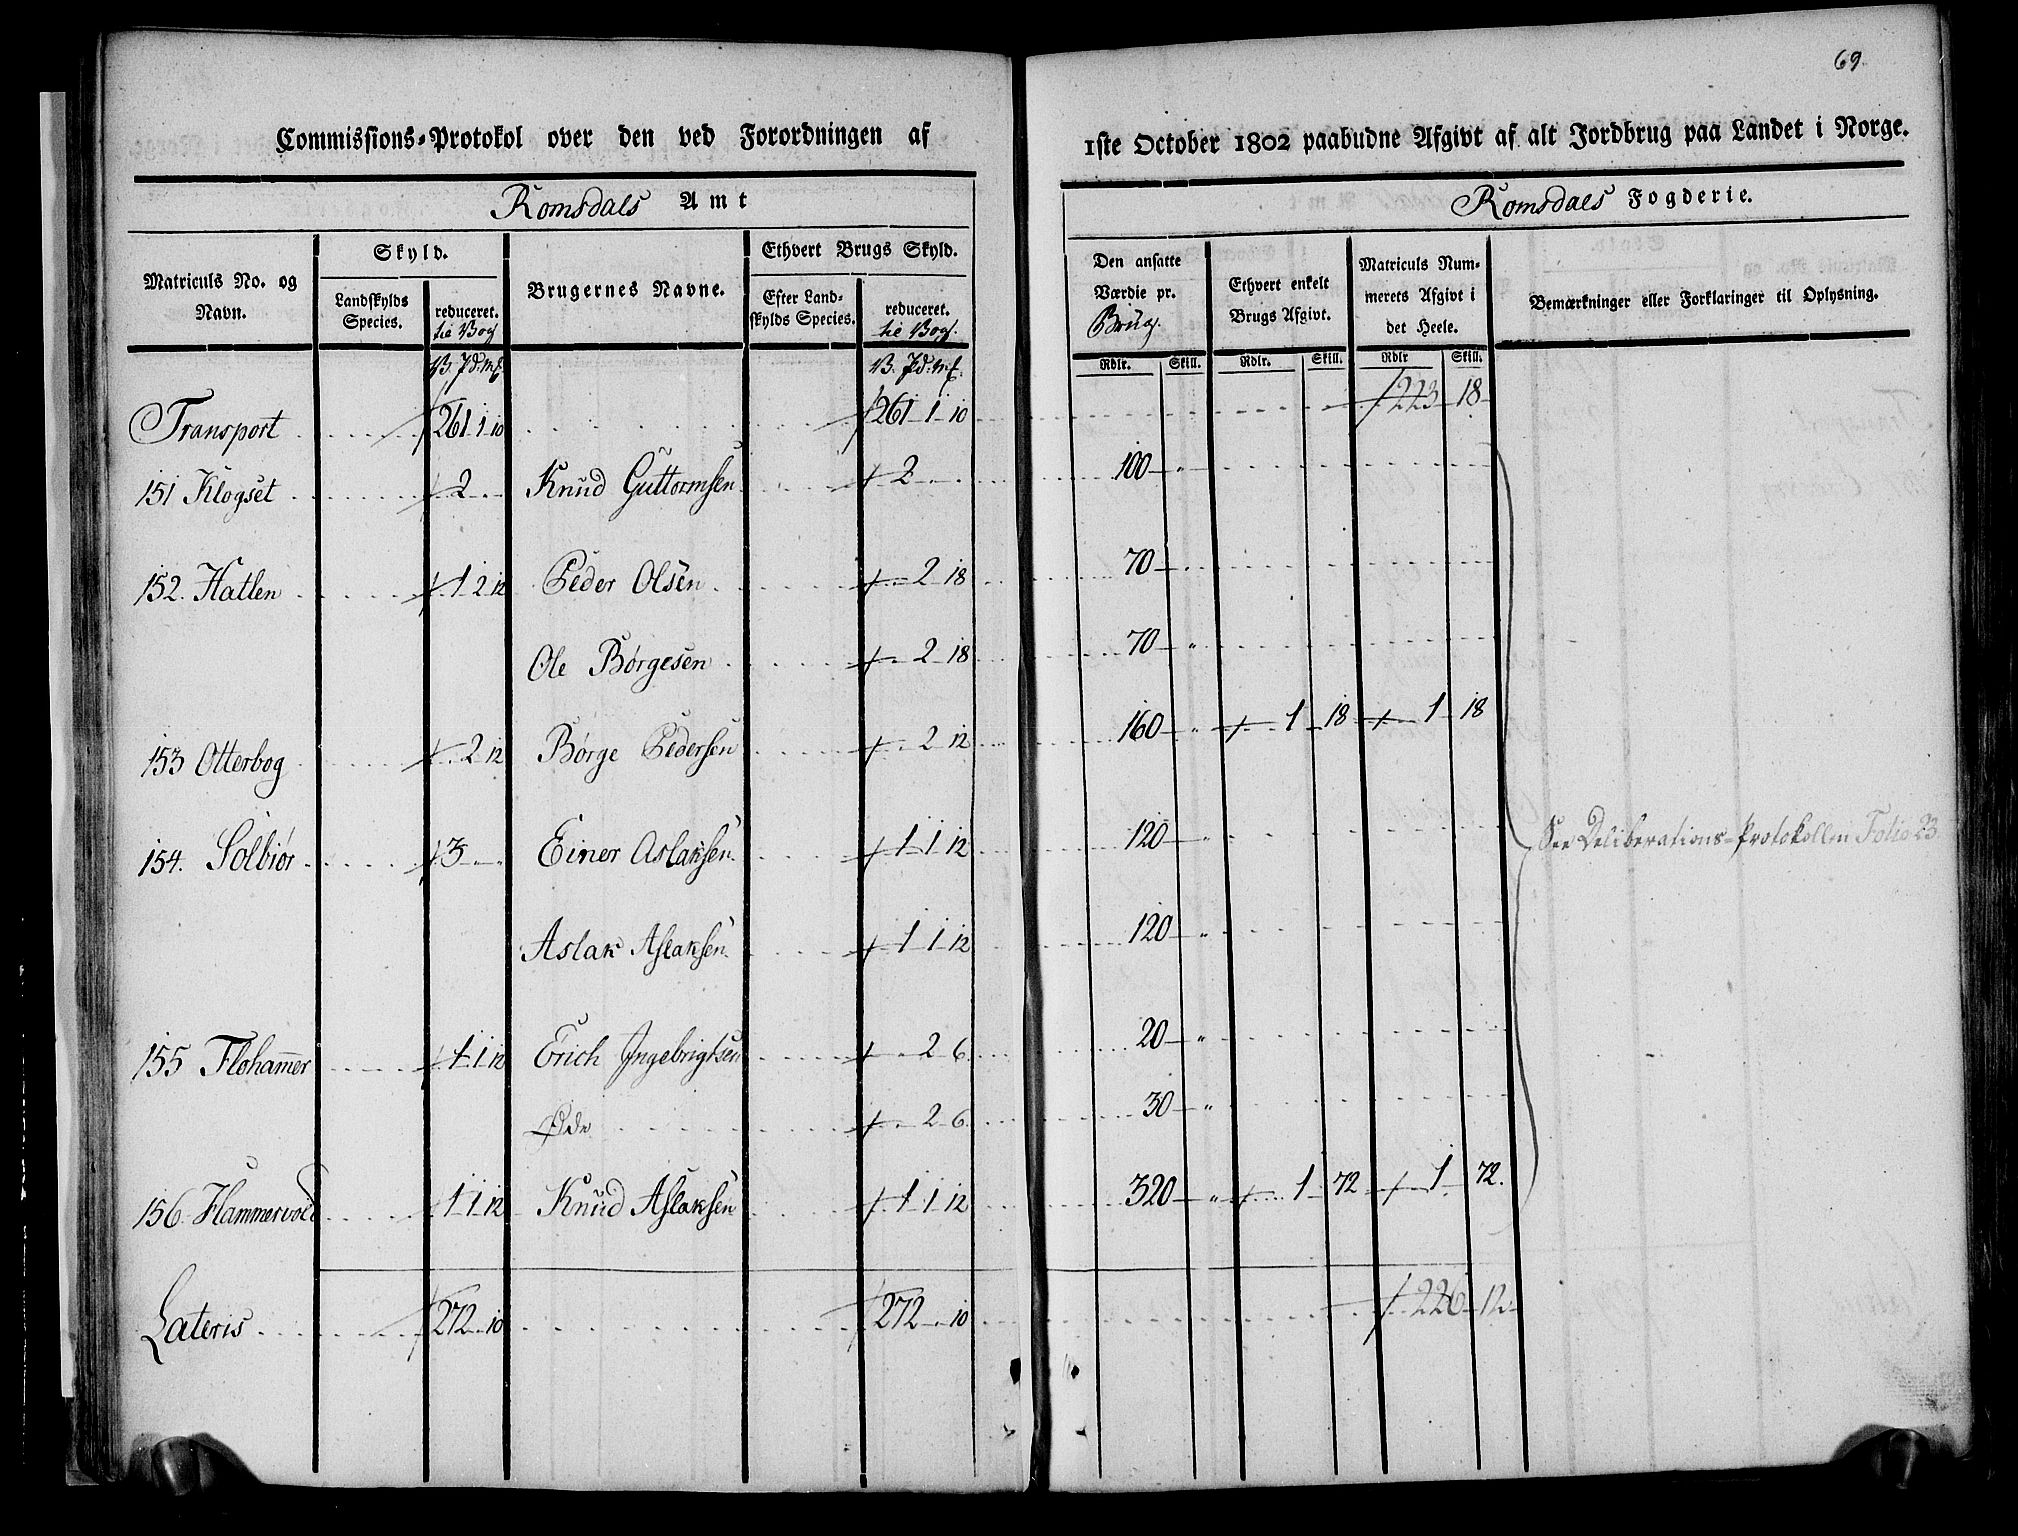 69.
Commissions-Protokol over den ved Forordningen af 1ste October 1802 paabudne Afgivt af alt Jordbrug paa Landet i Norge.
Romsdals Amt
Romsdals Fogderie.
Matriculs No. og Navn.
Skyld.
Landskylds Species.
reduceret. tie Vog
Brugernes Navne.
Ethvert Brugs Skyld.
Efter Landskylds Species.
reduceret. tie Vog.
Den ansatte Værdie pr. Brug.
Ethvert enkelt Brugs Afgivt.
Matriculs Nummerets Afgivt i det Heele.
Bemærkninger eller Forklaringer til Oplysning.
Rdlr. Skill. Rdlr. Skill. Rdlr Skill.
V. Pd. mk. V. Pd. mk.
Transport 261 1 10 261 1 10 223 18
151 Klogset 2 Knud Guttormsen 2 100 "
152. Hatlen 1 2 12 Peder Olsen 2 18 70 "
Ole Børgesen 2 18 70 "
153 Otterbog 2 12 Børge Pedersen 2 12 160 " 1 18 1 18
154. Solbiør 3 " Einer Aslaksen 1 1 12 120 "
See Deliberations-Protokollen Folio 23.
Aslak Aslaksen 1 1 12 120 "
155 Flohamer 1 1 12 Erich Ingebrigtsen 2 6 20 "
Øde 2 6 30 "
156 Hammervold 1 1 12 Knud Aslaksen 1 1 12 320 " 1 72 1 72.
Lateris 272 10 272 10 226 12